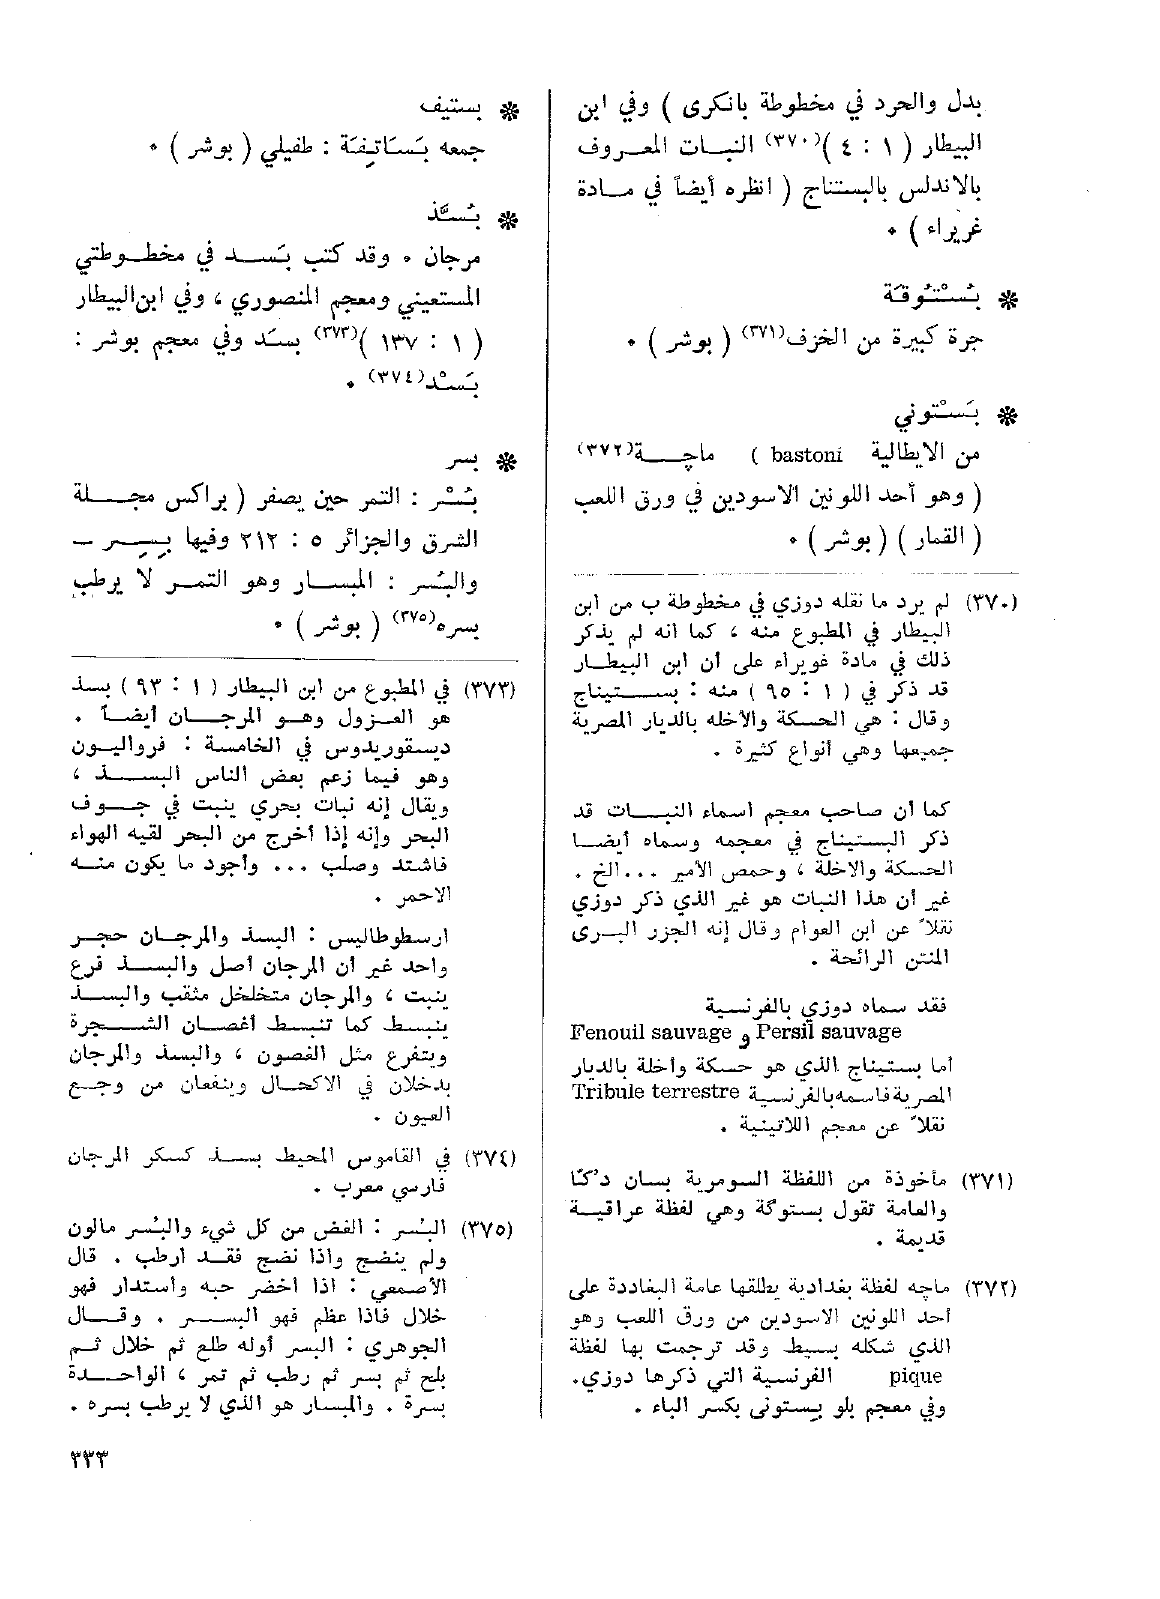 بدل والحرد في مخطوطة بانكرى ) وفي ابن
البيطار ( ١ : ٤ )(٣٧٠) النبات المعروف
بالاندلس بالبستناج ( انظره أيضاً في مادة
غريراء ) ٠
❋ بُسْتُوقَة
جرة كبيرة من الخزف(٣٧١) ( بوشر ) ٠
❋ بَسْتوني
من الايطالية bastoni ) ماچة(٣٧٢)
( وهو أحد اللونين الاسودين في ورق اللعب
( القمار ) ( بوشر ) ٠
(٣٧٠) لم يرد ما نقله دوزي في مخطوطة ب من ابن
البيطار في المطبوع منه ، كما انه لم يذكر
ذلك في مادة غويراء على أن ابن البيطار
قد ذكر في ( ١ : ٩٥ ) منه : بستيناج
وقال : هي الحسكة والأخله بالديار المصرية
جميعها وهي أنواع كثيرة .
كما أن صاحب معجم أسماء النبات قد
ذكر البستيناج في معجمه وسماه أيضا
الحسكة والاخلة ، وحمص الأمير ... الخ .
غير أن هذا النبات هو غير الذي ذكر دوزي
نقلاً عن ابن العوام وقال إنه الجزر البري
المنتن الرائحة .
فقد سماه دوزي بالفرنسية
Fenouil sauvage و Persil sauvage
أما بستيناج الذي هو حسكة وأخلة بالديار
المصرية فاسمه بالفرنسية Tribule terrestre
نقلاً عن معجم اللاتينية .
(٣٧١) مأخوذة من اللفظة السومرية بسان دُكّا
والعامة تقول بستوگة وهي لفظة عراقية
قديمة .
(٣٧٢) ماچه لفظة بغدادية يطلقها عامة البغاددة على
أحد اللونين الاسودين من ورق اللعب وهو
الذي شكله بسيط وقد ترجمت بها لفظة
pique الفرنسية التي ذكرها دوزي.
وفي معجم بلو بِستونى بكسر الباء .
❋ بستيف
جمعه بَسَاتِفَة : طفيلي ( بوشر ) ٠
❋ بُسَّذ
مرجان ٠ وقد كتب بَسد في مخطوطتي
المستعيني ومعجم المنصوري ، وفي ابن البيطار
( ١ : ١٣٧ )(٣٧٣) بسَد وفي معجم بوشر :
بَسْد(٣٧٤) ٠
❋ بسر
بُسْر : التمر حين يصفر ( براكس مجلة
الشرق والجزائر ٥ : ٢١٢ وفيها بِسِر —
والبُسر : المبسار وهو التمر لا يرطب
بسره(٣٧٥) ( بوشر ) ٠
(٣٧٣) في المطبوع من ابن البيطار ( ١ : ٩٣ ) بسذ
هو العزول وهو المرجان أيضاً .
ديسقوريدوس في الخامسة : فرواليون
وهو فيما زعم بعض الناس البسذ ،
ويقال إنه نبات بحري ينبت في جوف
البحر وإنه إذا أخرج من البحر لقيه الهواء
فاشتد وصلب ... وأجود ما يكون منه
الاحمر .
ارسطوطاليس : البسذ والمرجان حجر
واحد غير أن المرجان أصل والبسذ فرع
ينبت ، والمرجان متخلخل مثقب والبسذ
ينبسط كما تنبسط أغصان الشجرة
ويتفرع مثل الغصون ، والبسذ والمرجان
يدخلان في الاكحال وينفعان من وجع
العيون .
(٣٧٤) في القاموس المحيط بسذ كسكر المرجان
فارسي معرب .
(٣٧٥) البُسر : الغض من كل شيء والبُسر مالون
ولم ينضج واذا نضج فقد أرطب . قال
الأصمعي : اذا أخضر حبه واستدار فهو
خلال فاذا عظم فهو البسر . وقال
الجوهري : البسر أوله طلع ثم خلال ثم
بلح ثم بسر ثم رطب ثم تمر ، الواحدة
بسرة . والمبسار هو الذي لا يرطب بسره .
٣٣٣